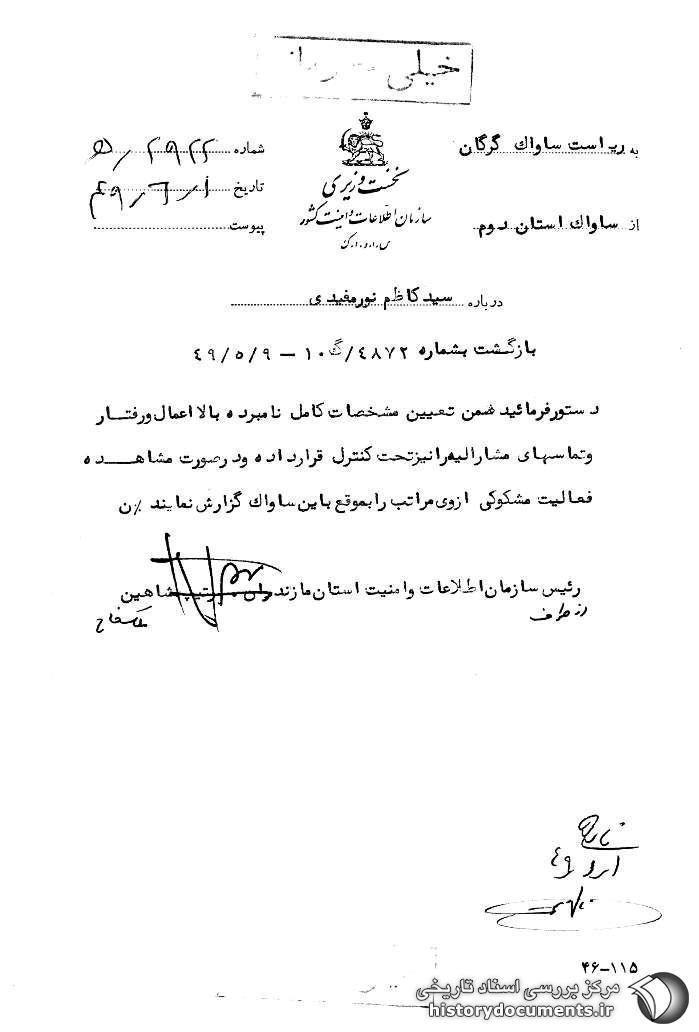 خیلی محرمانه
به ریاست ساواک گرگان
شماره ۲۹۲۲/ه
نخست وزیری
تاریخ ۴۹/۶/۱
سازمان اطلاعات و امنیت کشور
از ساواک استان دوم
پیوست
س.ا.و.ا.ک
درباره سید کاظم نورمفیدی
بازگشت بشماره ۴۸۷۲/گ ۱۰ – ۴۹/۵/۹
دستور فرمائید ضمن تعیین مشخصات کامل نامبرده بالا اعمال و رفتار
و تماسهای مشارالیه را نیز تحت کنترل قرار داده و در صورت مشاهده
فعالیت مشکوکی از وی مراتب را بموقع باین ساواک گزارش نمایند ٪ن
رئیس سازمان اطلاعات و امنیت استان مازندران سرتیپ شاهین
از طرف
۴۶–۱۱۵
مرکز بررسی اسناد تاریخی
historydocuments.ir